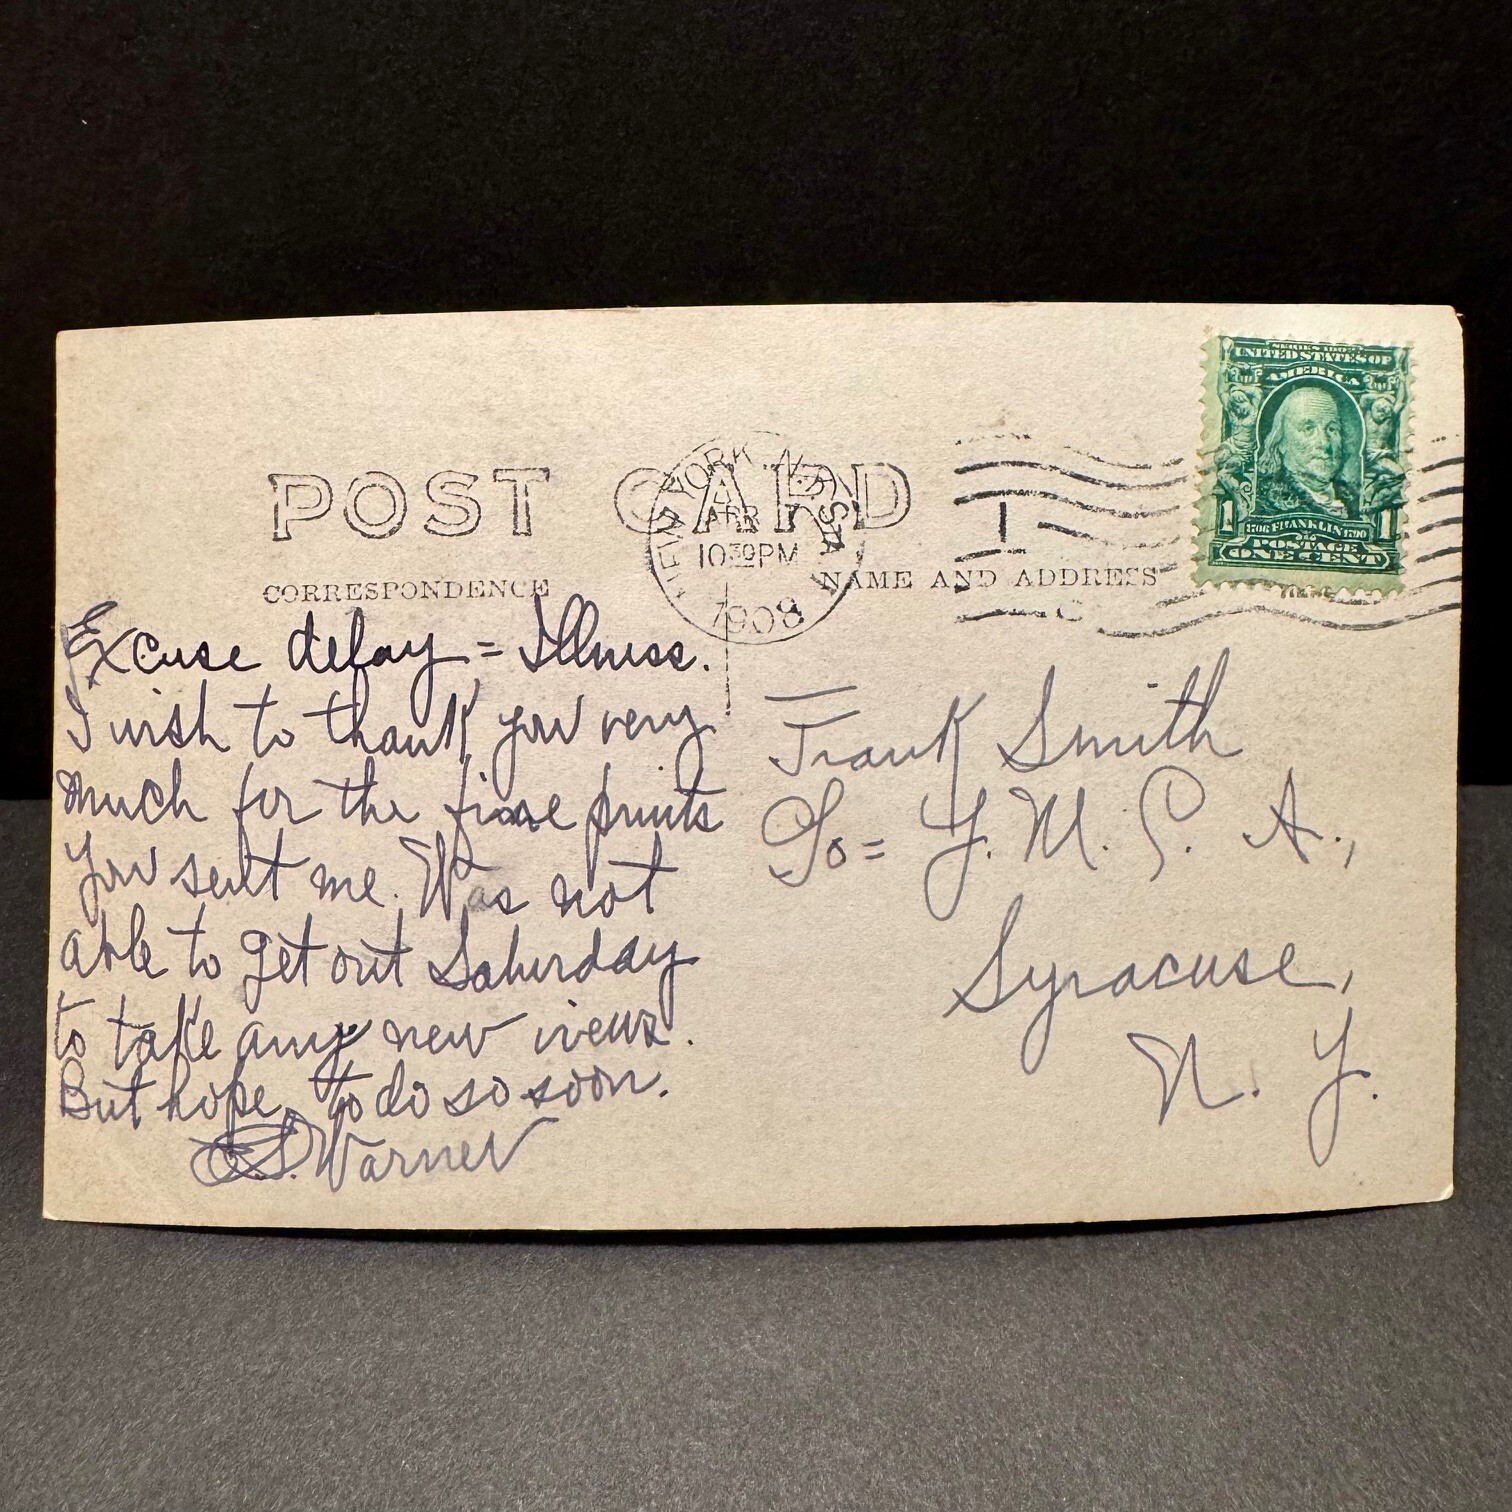 POST CARD
NEW YORK, N.Y. STA.
APR
10 30 PM
1908
SERIES 1902
UNITED STATES OF
AMERICA
1 1706 FRANKLIN 1790 1
POSTAGE
ONE CENT
CORRESPONDENCE
NAME AND ADDRESS
Excuse delay = Illness.
I wish to thank you very
much for the fine prints
you sent me. Was not
able to get out Saturday
to take any new views.
But hope to do so soon.
S. Warner
Frank Smith
Go= Y. M. C. A.,
Syracuse,
N. Y.